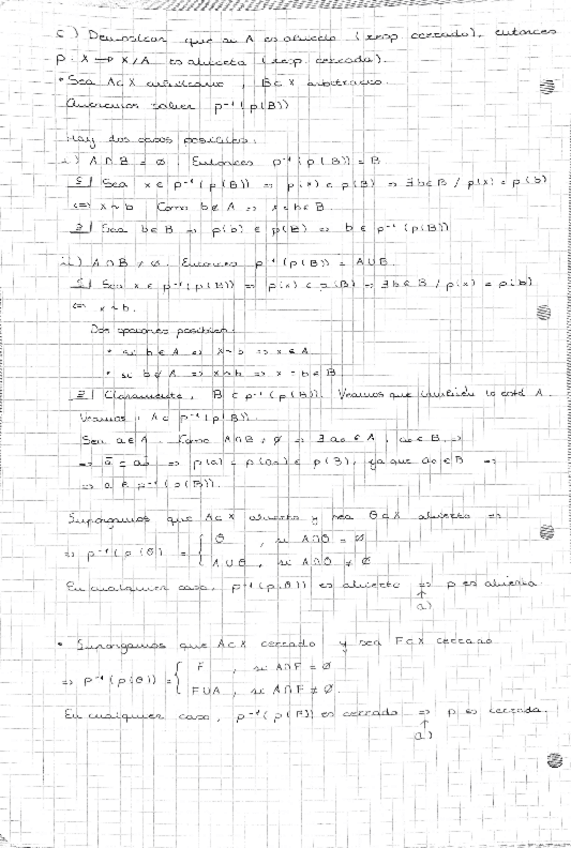 c) Demostrar que si A es abierto (resp cerrado), entonces
p: X → X/A es abierta (resp. cerrada).
• Sea A⊂X cualesquiera, B⊂X arbitrario.
Queremos saber p⁻¹(p(B))
Hay dos casos posibles:
i) A∩B = ∅. Entonces p⁻¹(p(B)) = B
⊆| Sea x ∈ p⁻¹(p(B)) ⇒ p(x) ∈ p(B) ⇒ ∃b∈B / p(x) = p(b)
⇔ x~b Como b∉A ⇒ x=b∈B.
⊇| Sea b∈B ⇒ p(b) ∈ p(B) ⇒ b ∈ p⁻¹(p(B))
ii) A∩B ≠ ∅. Entonces p⁻¹(p(B)) = A∪B.
⊆| Sea x ∈ p⁻¹(p(B)) ⇒ p(x) ∈ p(B) ⇒ ∃b∈B / p(x) = p(b)
⇔ x~b.
Dos opciones posibles:
• si b∈A ⇒ x~b ⇒ x∈A
• si b∉A ⇒ x~b ⇒ x=b∈B
⊇| Claramente, B⊂p⁻¹(p(B)). Veamos que también lo está A.
Veamos, A⊂p⁻¹(p(B)).
Sea a∈A. Como A∩B ≠ ∅ ⇒ ∃a₀∈A, a₀∈B ⇒
⇒ ā = ā₀ ⇒ p(a) = p(a₀) ∈ p(B), ya que a₀∈B ⇒
⇒ a ∈ p⁻¹(p(B)).
Supongamos que A⊂X abierto y sea Θ⊂X abierto ⇒
⇒ p⁻¹(p(Θ)) = { Θ, si A∩Θ = ∅
A∪Θ, si A∩Θ ≠ ∅
En cualquier caso, p⁻¹(p(Θ)) es abierto ⇒ p es abierta
↑
a)
• Supongamos que A⊂X cerrado y sea F⊂X cerrado
⇒ p⁻¹(p(Θ)) = { F, si A∩F = ∅
F∪A, si A∩F ≠ ∅.
En cualquier caso, p⁻¹(p(F)) es cerrado ⇒ p es cerrada.
↑
a)